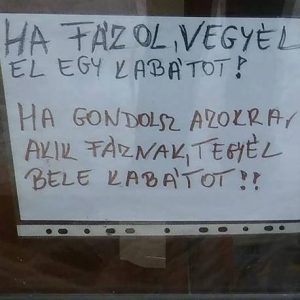 HA FÁZOL, VEGYÉL
EL EGY KABÁTOT!
HA GONDOLSZ AZOKRA,
AKIK FÁZNAK, TEGYÉL
BELE KABÁTOT!!